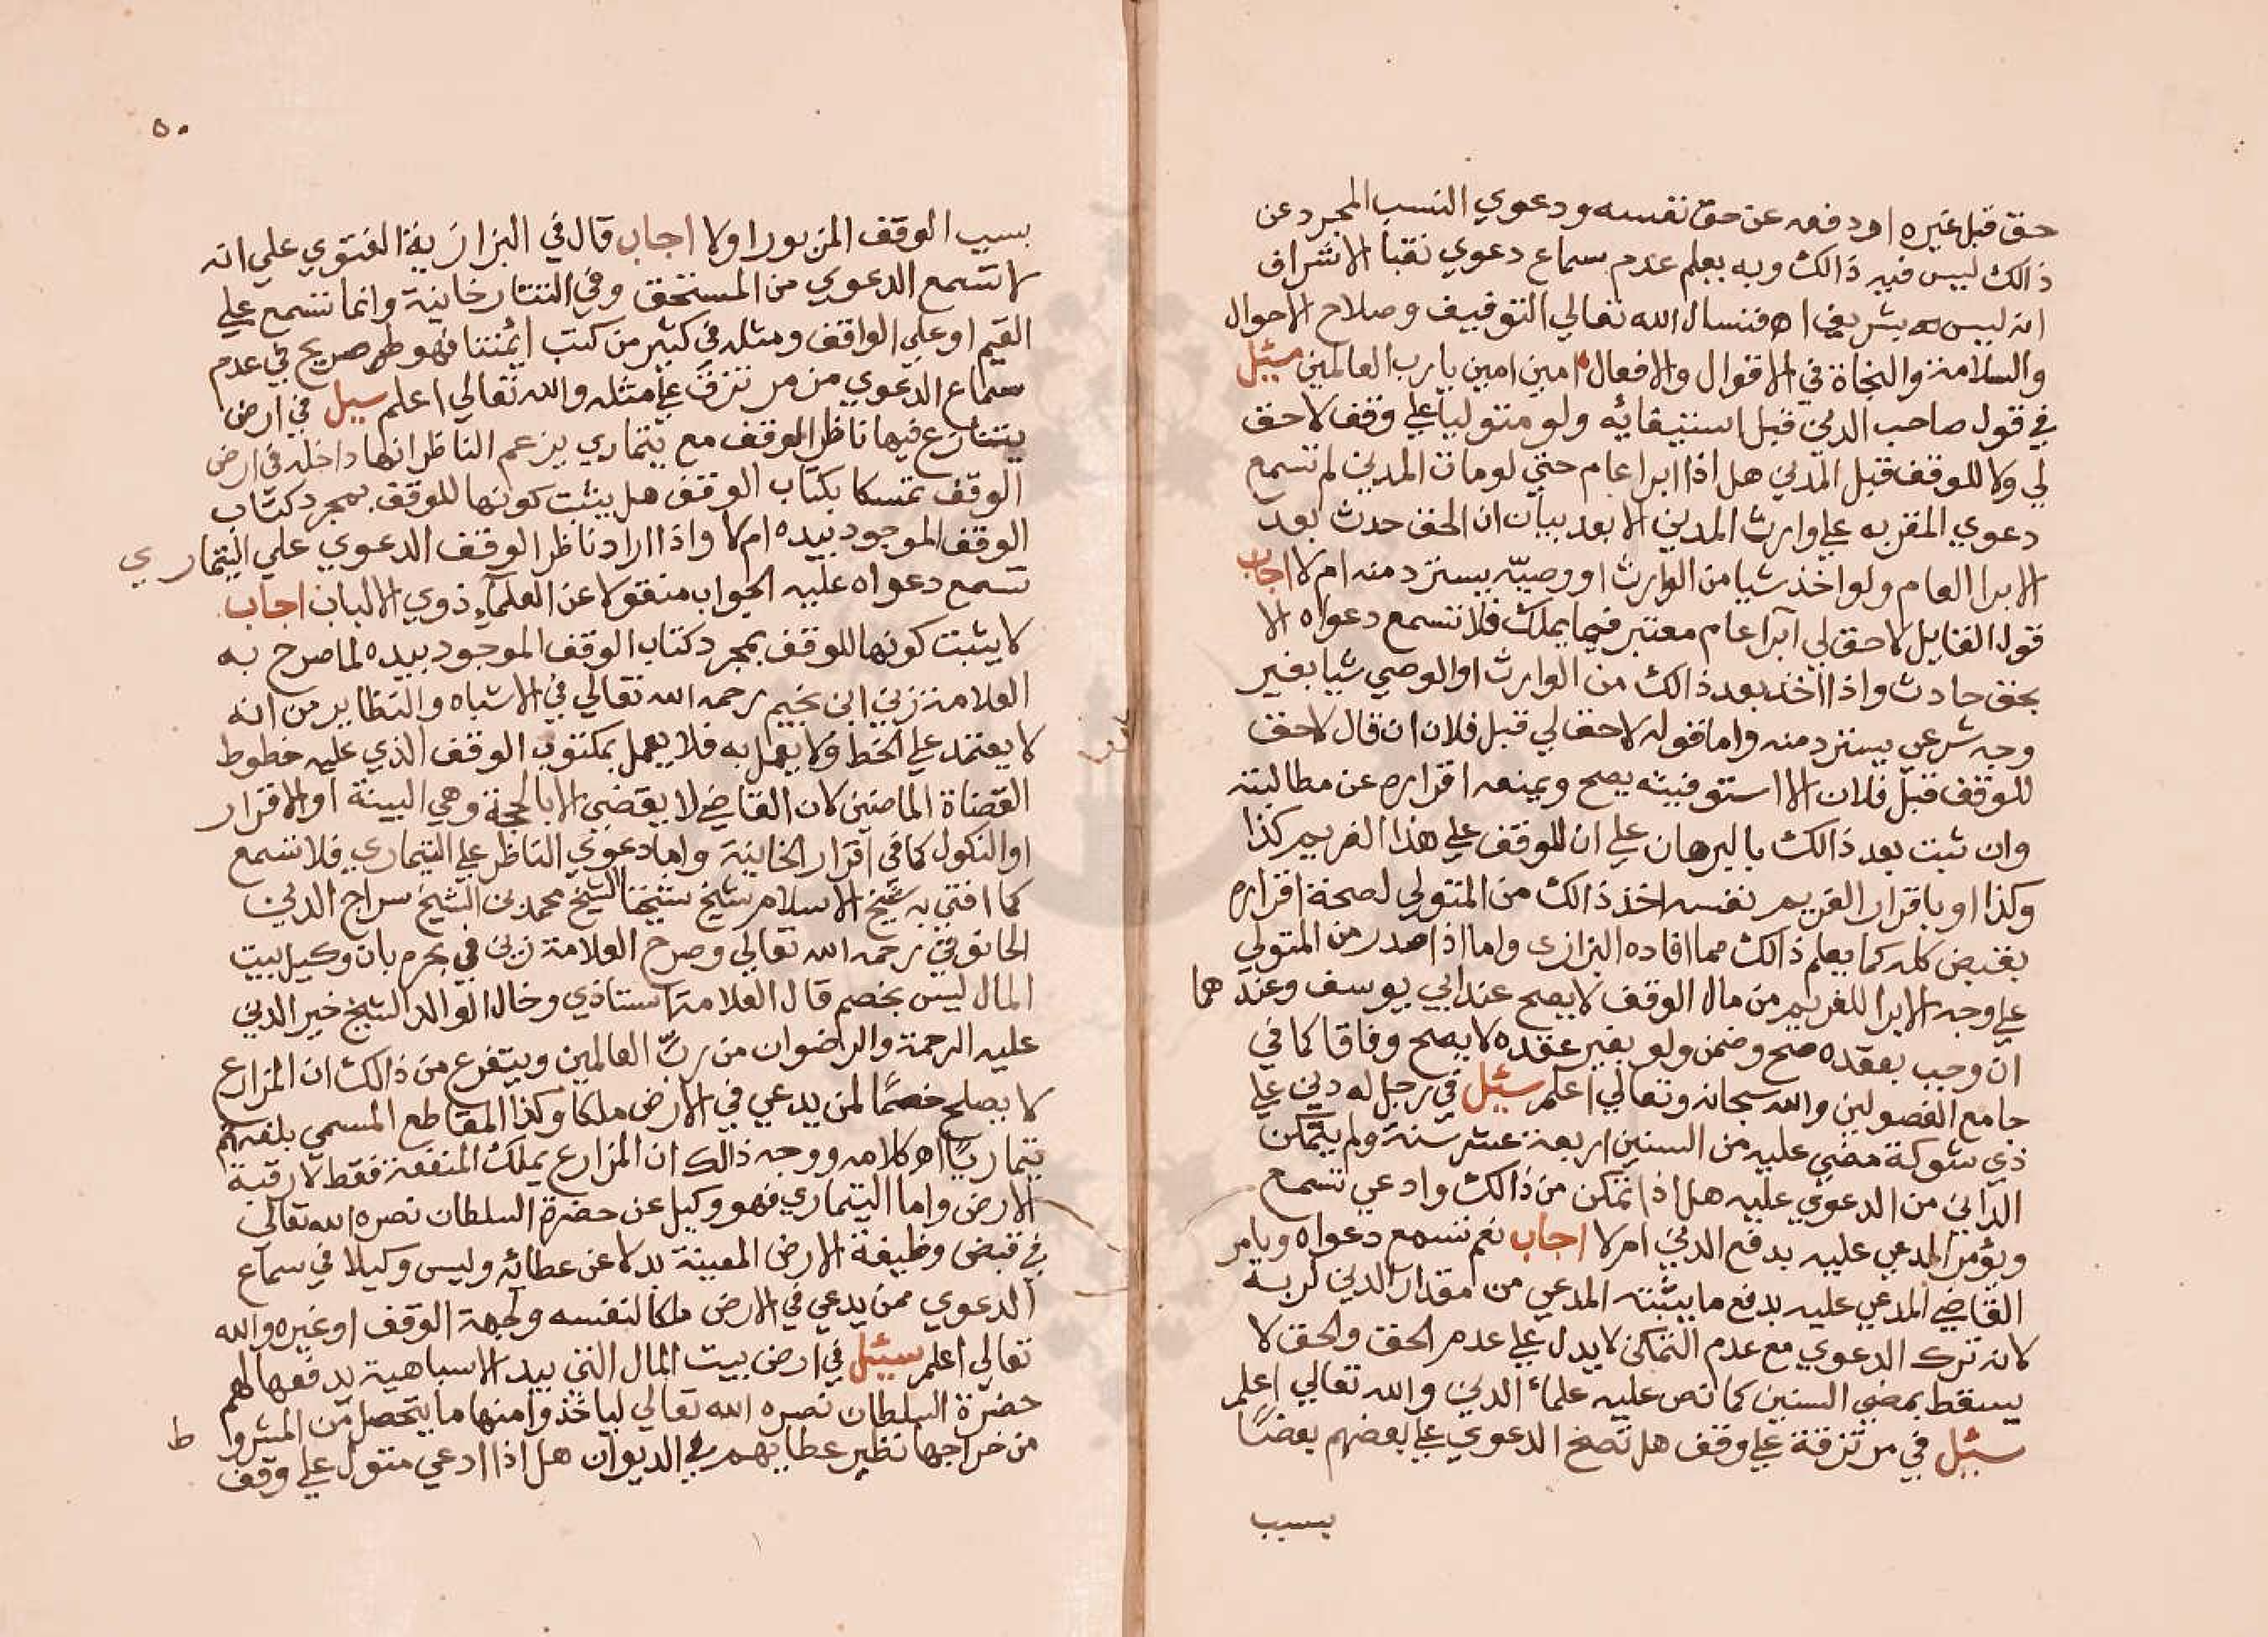 حق قبل غيره او دفعه عن حق نفسه ودعوي النسب المجرد عن
ذالك ليس فيه ذالك وبه يعلم عدم سماع دعوي نقبا الاشراف
انه ليس بشريف اه فنسال الله تعالي التوفيف وصلاح الاحوال
والسلامة والنجاة في الاقوال والافعال امين امين يا رب العالمين سئل
في قول صاحب الدين قبل استيفائه ولو متوليا علي وقف لا حق
لي ولا للوقف قبل المدين هل اذا ابرا عام حتي لو مات المدين لم تسمع
دعوي المقر به علي وارث المدين الا بعد بيان ان الحق حدث بعد
الابرا العام ولو اخذ شيا من الوارث او وصيه يسترد منه ام لا اجاب
قول القايل لا حق لي ابرا عام معتبر فيما يملك فلا تسمع دعواه الا
بحق حادث واذا اخذ بعد ذالك من الوارث او الوصي شيا بغير
وجه شرعي يسترد منه واما قوله لا حق لي قبل فلان ان قال لا حق
للوقف قبل فلان الا استوفيته يصح ويمنعه اقراره عن مطالبته
وان ثبت بعد ذالك بالبرهان علي ان للوقف علي هذا الغريم كذا
وكذا او باقرار الغريم نفسه اخذ ذالك من المتولي لصحة اقراره
بقبض كله كما يعلم ذالك مما افاده البزازى واما اذا صدر من المتولي
علي وجه الابرا للغريم من مال الوقف لا يصح عند ابي يوسف وعندهما
ان وجب بعقده صح وضمن ولو بغير عقده لا يصح وفاقا كما في
جامع الفصولين والله سبحانه وتعالي اعلم سئل في رجل له دين علي
ذي شوكة مضي عليه من السنين اربعة عشر سنة ولم يتمكن
الداين من الدعوي عليه هل اذا تمكن من ذالك وادعي تسمع
ويؤمر المدعي عليه بدفع الدين ام لا اجاب نعم تسمع دعواه ويامر
القاضي المدعي عليه بدفع ما يثبته المدعي من مقدار الدين لربه
لانه ترك الدعوي مع عدم التمكن لا يدل علي عدم الحق والحق لا
يسقط بمضي السنين كما نص عليه علماء الدين والله تعالي اعلم
سئل في مرتزقة علي وقف هل تصح الدعوي علي بعضهم بعضًا
بسبب
٥٠
بسبب الوقف المزبور اولا اجاب قال في البزازية الفتوي علي انه
لا تسمع الدعوي من المستحق وفي التتارخانية وانما تسمع علي
القيم او علي الواقف ومثله في كثير من كتب ايمتنا فهو صريح في عدم
سماع الدعوي من مرتزق علي مثله والله تعالي اعلم سيل في ارض
يتنازع فيها ناظر الوقف مع تيماري يزعم الناظر انها داخله في ارض
الوقف تمسكا بكتاب الوقف هل يثبت كونها للوقف بمجرد كتاب
الوقف الموجود بيده ام لا واذا اراد ناظر الوقف الدعوي علي التيماري
تسمع دعواه عليه الجواب منقولا عن العلماء ذوي الالباب اجاب
لا يثبت كونها للوقف بمجرد كتاب الوقف الموجود بيده لما صرح به
العلامة زين ابن نجيم رحمه الله تعالي في الاشباه والنظاير من انه
لا يعتمد علي الخط ولا يعمل به فلا يعمل بمكتوب الوقف الذي عليه خطوط
القضاة الماضين لان القاضي لا يقضي الا بالحجة وهي البينة او الاقرار
او النكول كما في اقرار الخانية واما دعوي الناظر علي التيماري فلا تسمع
كما افتي به شيخ الاسلام شيخ شيخنا الشيخ محمد بن الشيخ سراج الدين
الحانوتي رحمه الله تعالي وصرح العلامة زين في بحره بان وكيل بيت
المال ليس بخصم قال العلامة استاذي وخال الوالد الشيخ خير الدين
عليه الرحمة والراضوان من ربّ العالمين ويتفرع من ذالك ان المزارع
لا يصلح خصمًا لمن يدعي في الارض ملكا وكذا المقاطع المسمي بلغتهم
تيماريًا اه كلامه ووجه ذالك ان المزارع يملك المنفعة فقط لا رقبة
الارض واما التيماري فهو وكيل عن حضرة السلطان نصره الله تعالي
في قبض وظيفة الارض المعينة بدلا عن عطائه وليس وكيلا في سماع
الدعوي ممن يدعي في الارض ملكا لنفسه ولجهة الوقف او غيره والله
تعالي اعلم سئيل في ارض بيت المال التي بيد الاسباهية يدفعها لهم
حضرة السلطان نصره الله تعالي لياخذوا منها ما يتحصل من المشروط
من خراجها نظير عطايهم في الديوان هل اذا ادعي متول علي وقف